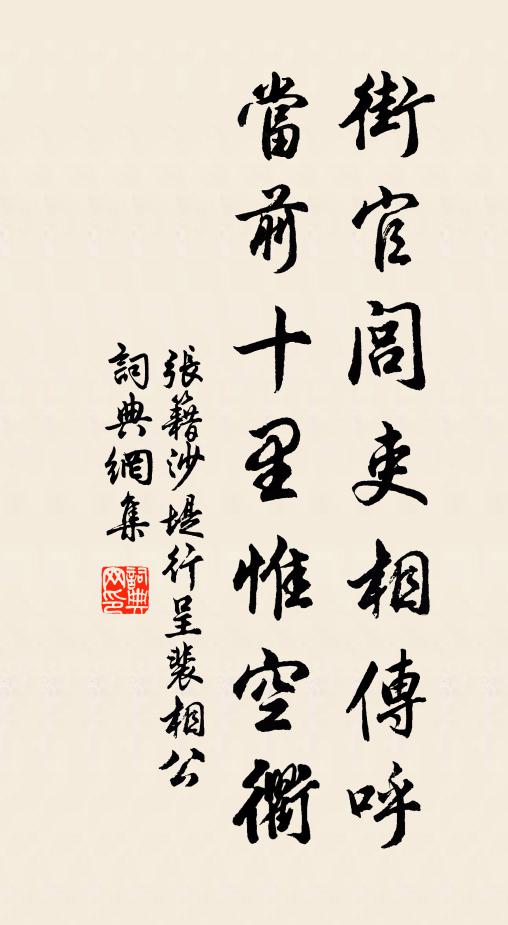 街官閭吏相傳呼
當前十里惟空衢
張籍沙堤行呈裴相公
詞典網集
詞典網印